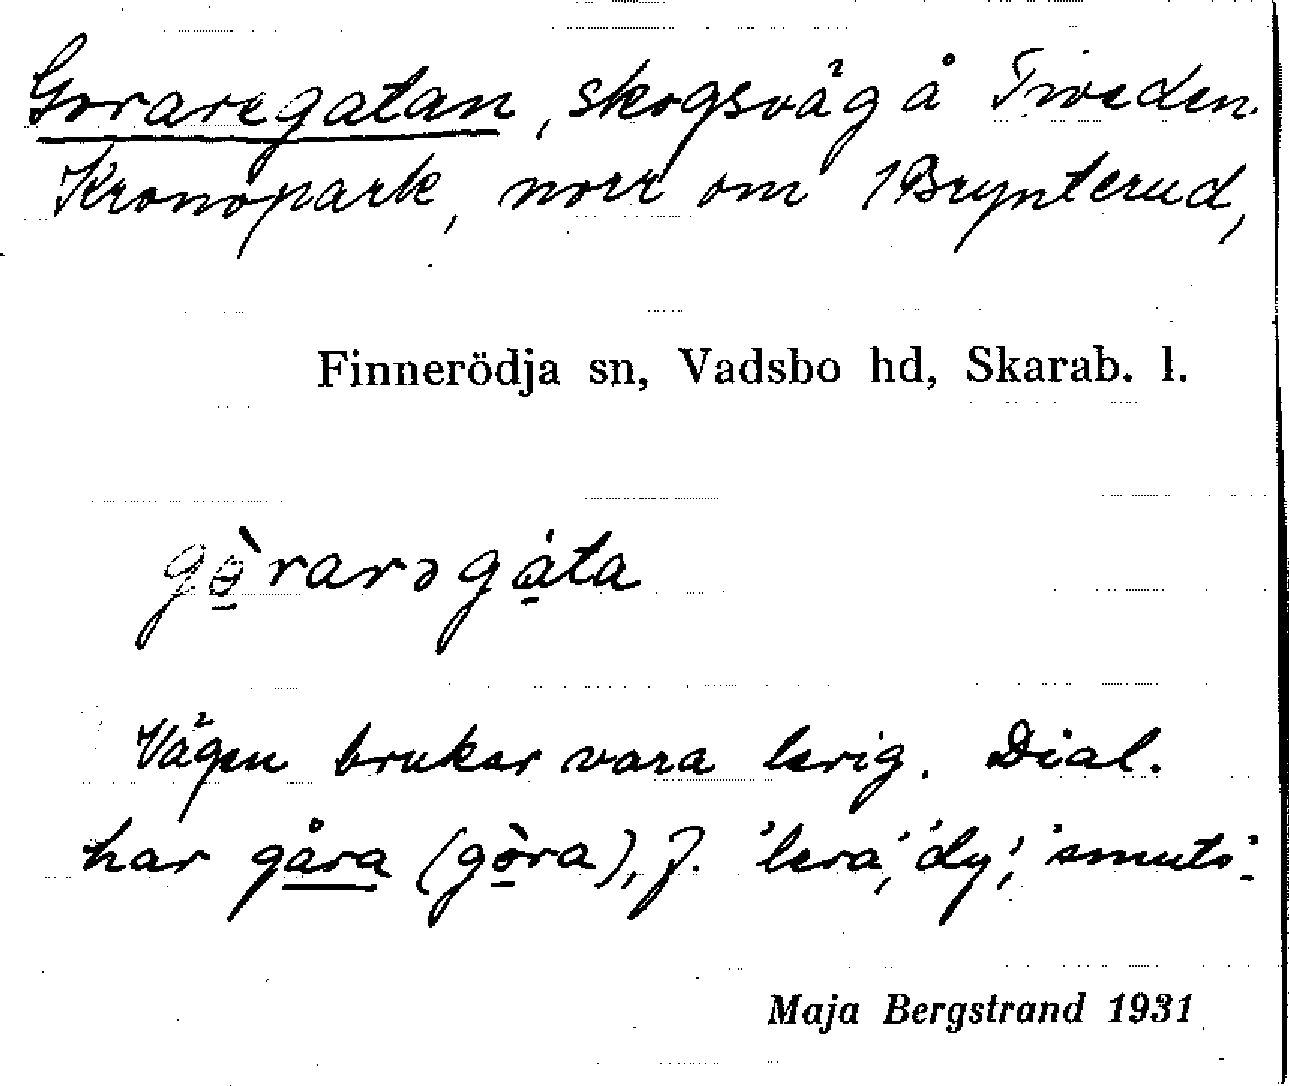 Goraregatan, skogsväg å Tiveden
Kronopark, norr om 1Brynterud,
Finnerödja sn, Vadsbo hd, Skarab. l.
gò̠rarəgá̠ta
Vägen brukar vara lerig. Dial.
har gåra (gò̠ra), f. 'lera', 'dy', 'smuts'.
Maja Bergstrand 1931